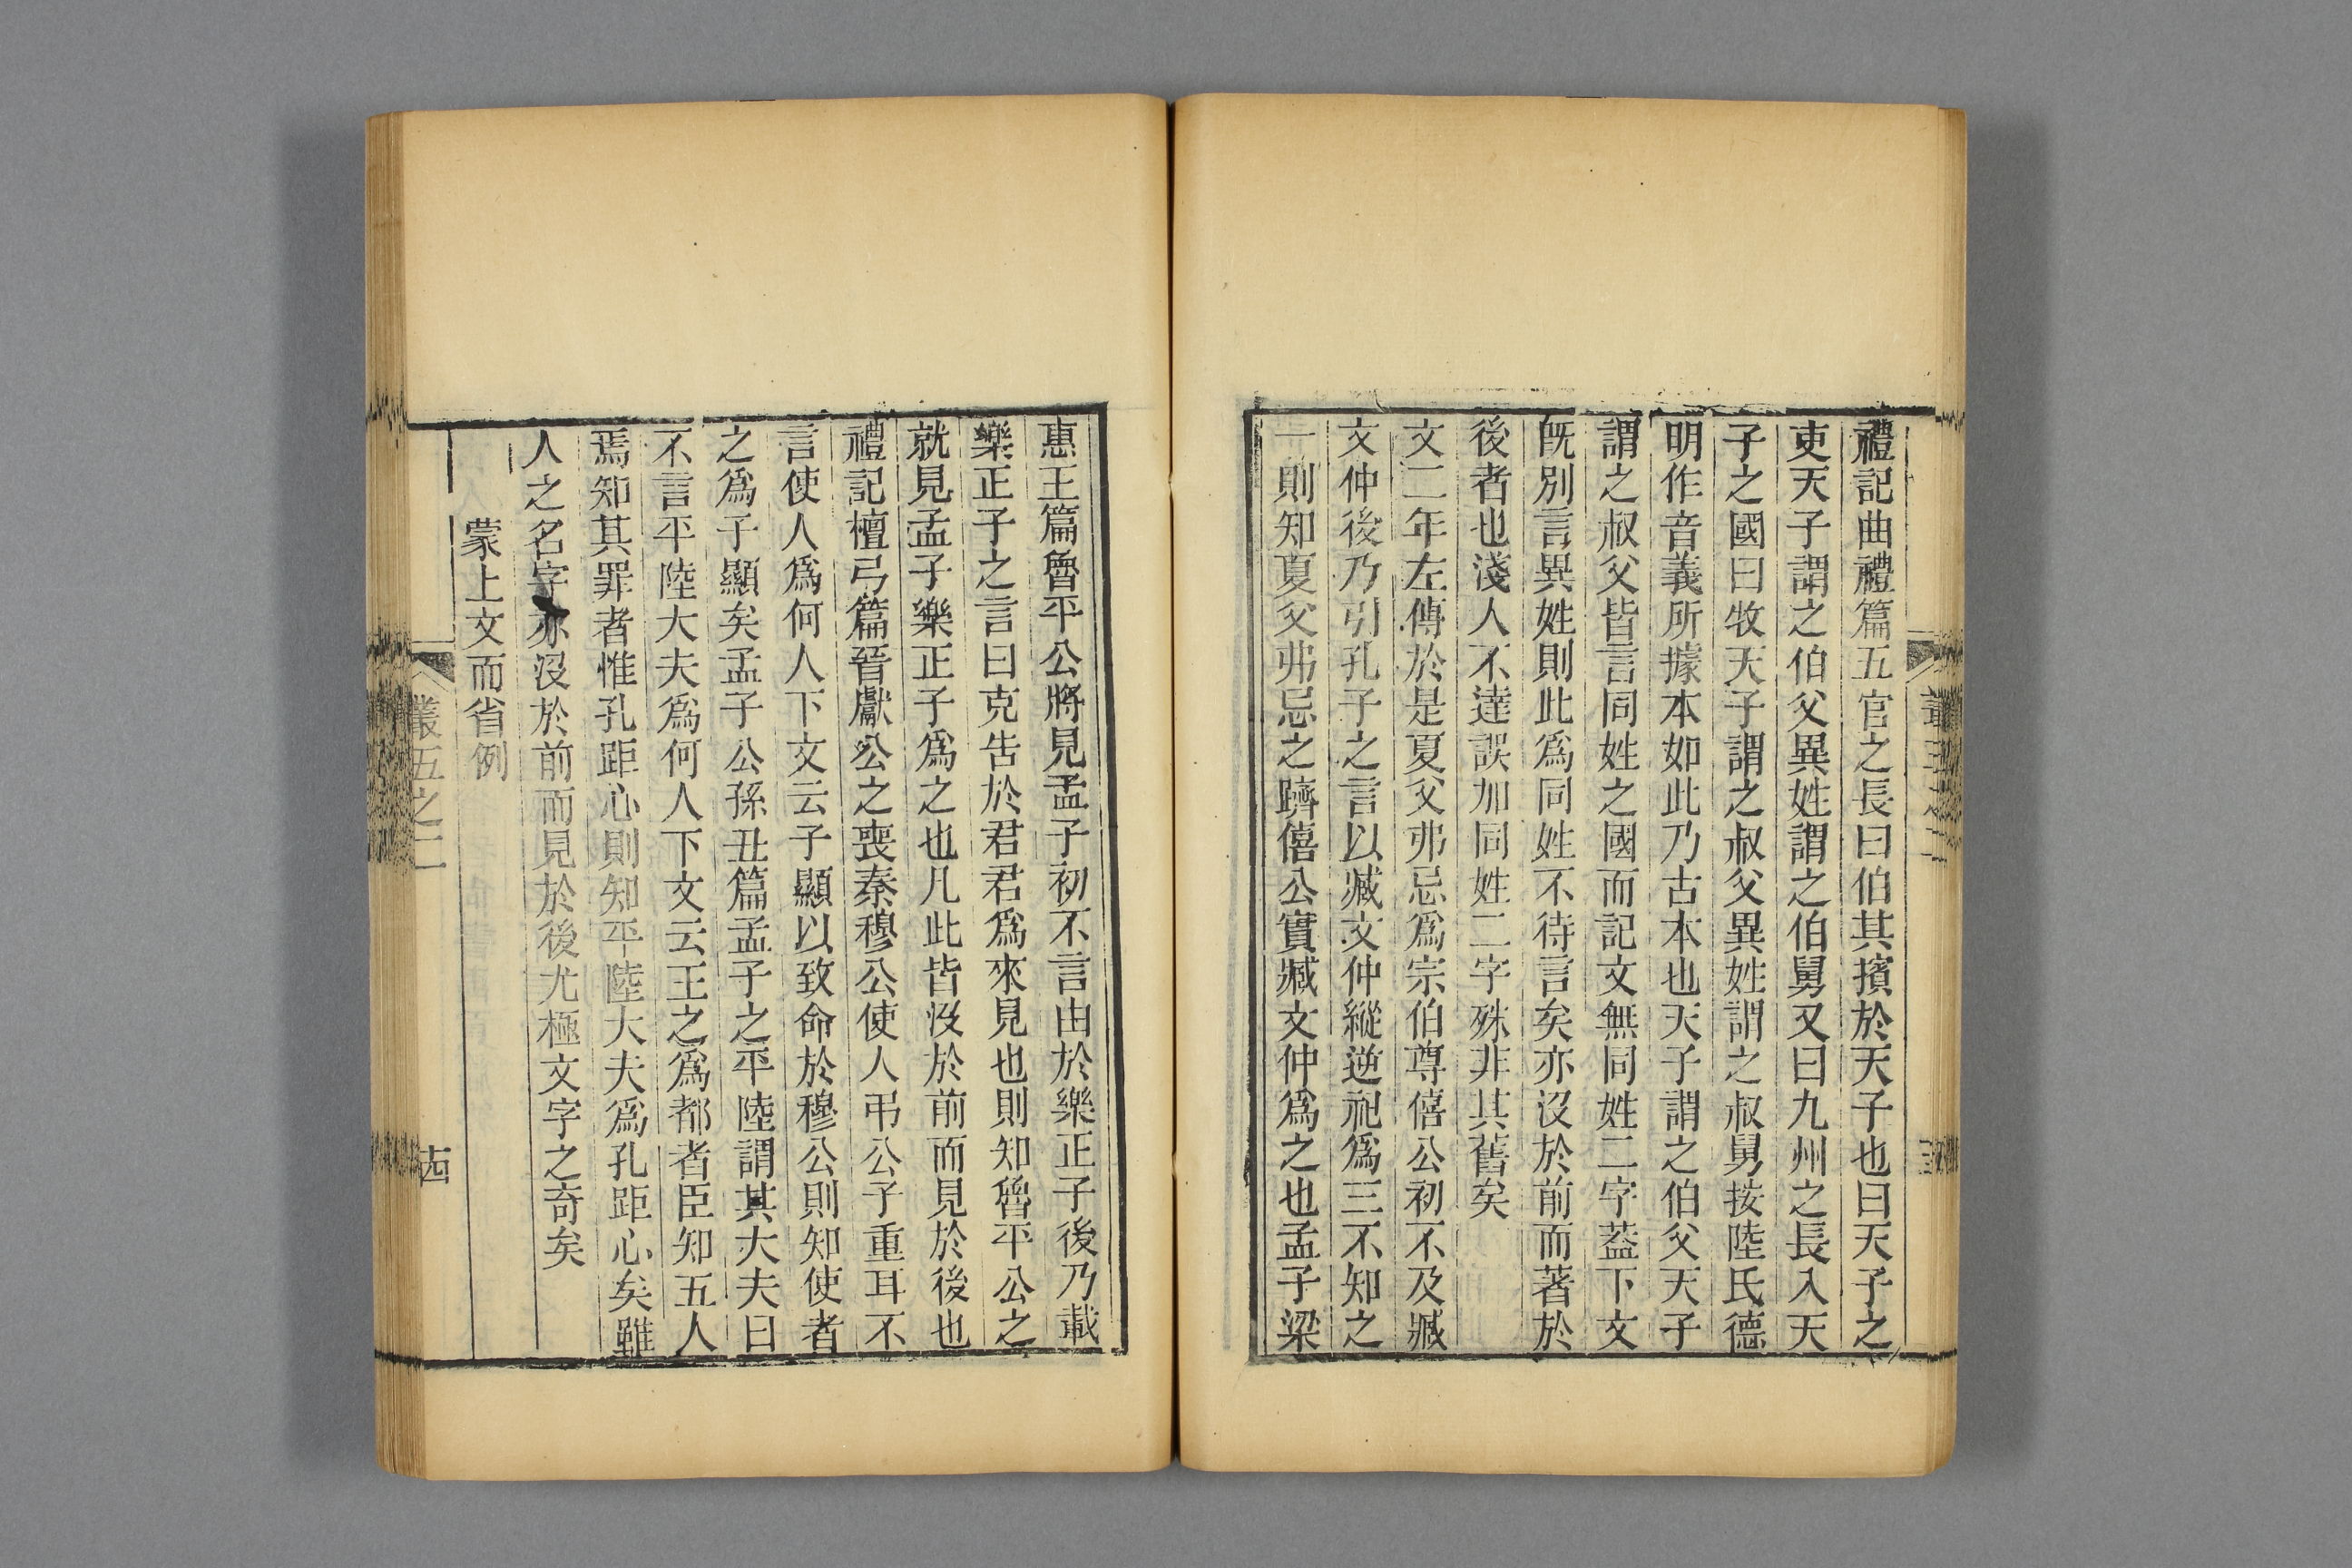 禮記曲禮篇五官之長曰伯其擯於天子也曰天子之
吏天子謂之伯父異姓謂之伯舅又曰九州之長入天
子之國曰牧天子謂之叔父異姓謂之叔舅按陸氏德
明作音義所據本如此乃古本也天子謂之伯父天子
謂之叔父皆言同姓之國而記文無同姓二字葢下文
旣別言異姓則此爲同姓不待言矣亦沒於前而著於
後者也淺人不達誤加同姓二字殊非其舊矣
文二年左傳於是夏父弗忌爲宗伯尊僖公初不及臧
文仲後乃引孔子之言以臧文仲縱逆祀爲三不知之
一則知夏父弗忌之躋僖公實臧文仲爲之也孟子梁
惠王篇魯平公將見孟子初不言由於樂正子後乃載
樂正子之言曰克告於君君爲來見也則知魯平公之
就見孟子樂正子爲之也凡此皆沒於前而見於後也
禮記檀弓篇晉獻公之喪秦穆公使人弔公子重耳不
言使人爲何人下文云子顯以致命於穆公則知使者
之爲子顯矣孟子公孫丑篇孟子之平陸謂其大夫曰
不言平陸大夫爲何人下文云王之爲都者臣知五人
焉知其罪者惟孔距心則知平陸大夫爲孔距心矣雖
人之名字亦沒於前而見於後尤極文字之奇矣
蒙上文而省例
叢五之二
十四